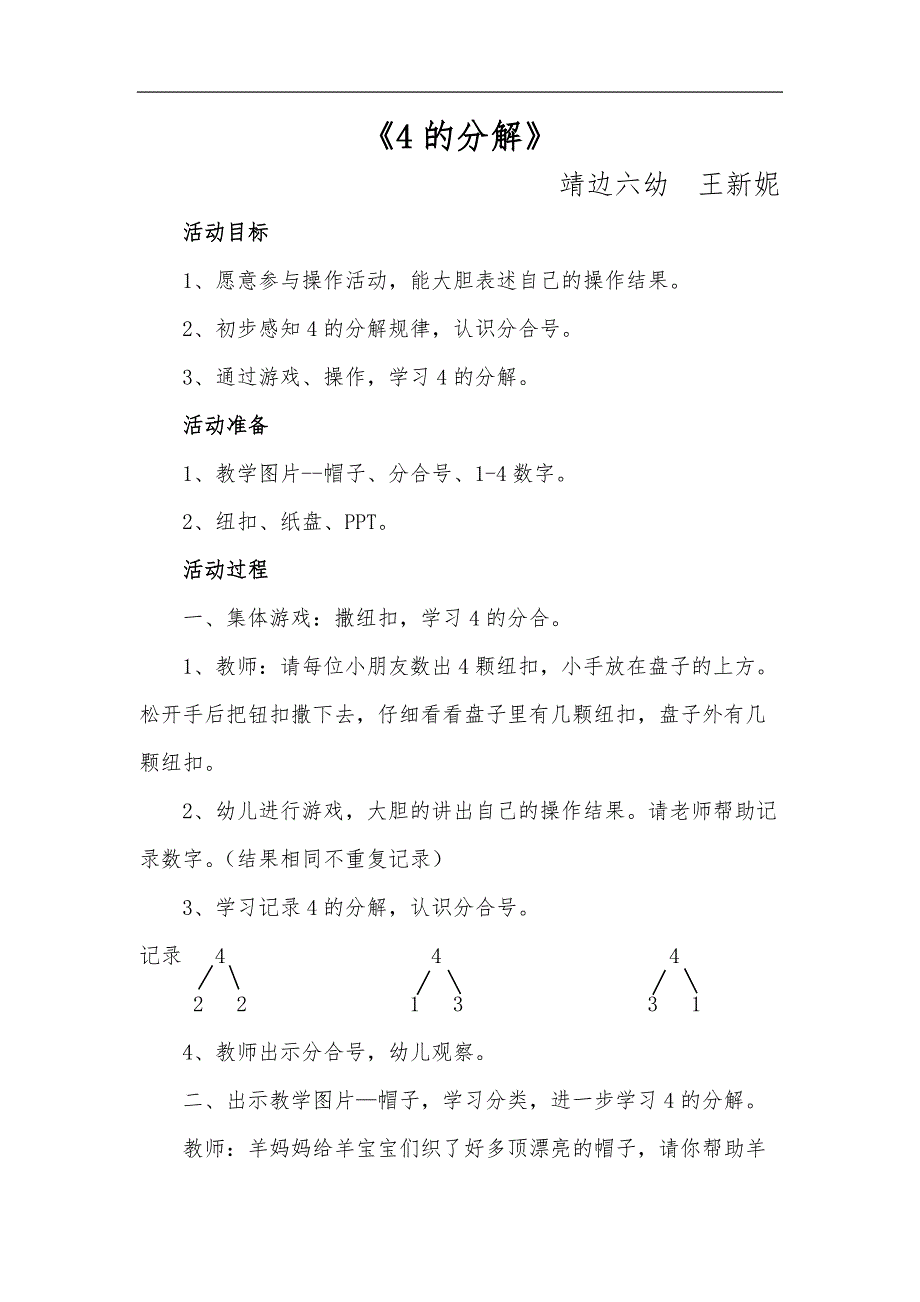 《4的分解》
靖边六幼　王新妮
活动目标
1、愿意参与操作活动，能大胆表述自己的操作结果。
2、初步感知4的分解规律，认识分合号。
3、通过游戏、操作，学习4的分解。
活动准备
1、教学图片--帽子、分合号、1-4数字。
2、纽扣、纸盘、PPT。
活动过程
一、集体游戏：撒纽扣，学习4的分合。
1、教师：请每位小朋友数出4颗纽扣，小手放在盘子的上方。
松开手后把钮扣撒下去，仔细看看盘子里有几颗纽扣，盘子外有几
颗纽扣。
2、幼儿进行游戏，大胆的讲出自己的操作结果。请老师帮助记
录数字。（结果相同不重复记录）
3、学习记录4的分解，认识分合号。
记录 4 4 4
2 2 1 3 3 1
4、教师出示分合号，幼儿观察。
二、出示教学图片—帽子，学习分类，进一步学习4的分解。
教师：羊妈妈给羊宝宝们织了好多顶漂亮的帽子，请你帮助羊